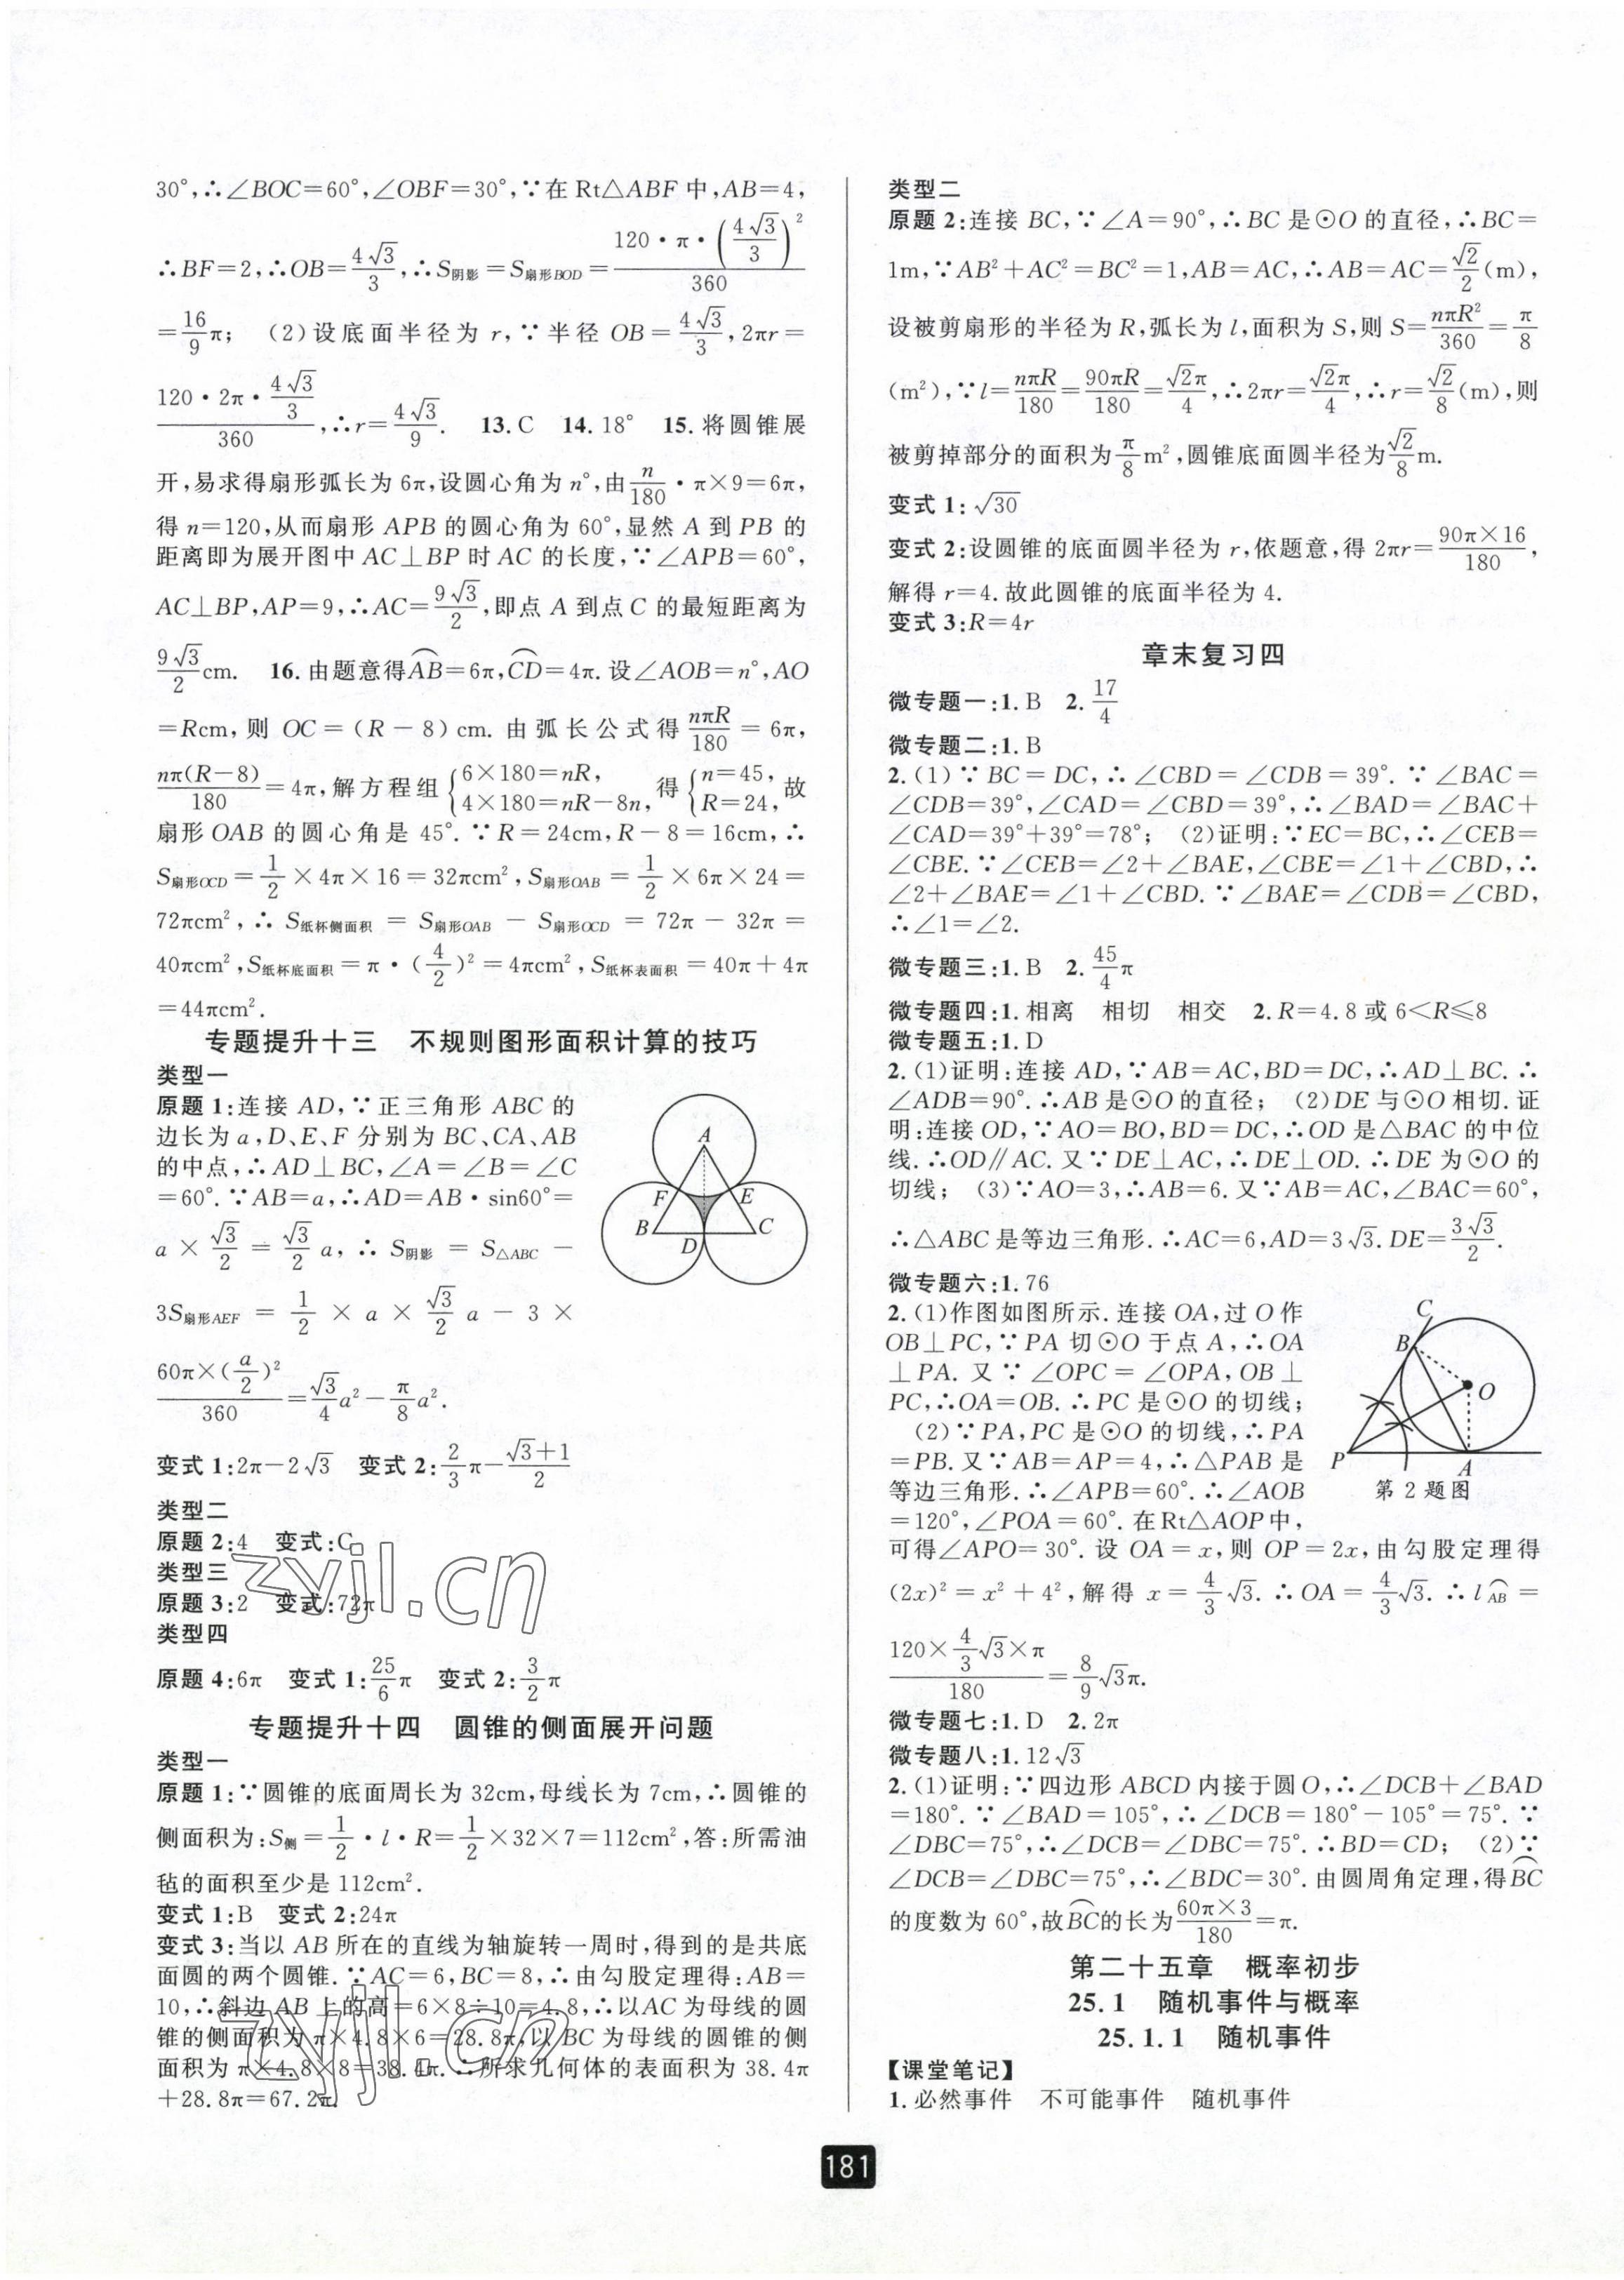 30°,∴∠BOC=60°,∠OBF=30°,∵在 Rt△ABF 中,AB=4,
∴BF=2,∴OB=4√3/3,∴S阴影=S扇形BOD=120·π·(4√3/3)²/360
=16/9π; (2)设底面半径为 r,∵半径 OB=4√3/3,2πr=
120·2π·4√3/3/360,∴r=4√3/9. 13.C 14.18° 15.将圆锥展
开,易求得扇形弧长为 6π,设圆心角为 n°,由n/180·π×9=6π,
得 n=120,从而扇形 APB 的圆心角为 60°,显然 A 到 PB 的
距离即为展开图中 AC⊥BP 时 AC 的长度,∵∠APB=60°,
AC⊥BP,AP=9,∴AC=9√3/2,即点 A 到点 C 的最短距离为
9√3/2cm. 16.由题意得AB⌒=6π,CD⌒=4π.设∠AOB=n°,AO
=Rcm,则 OC=(R-8)cm.由弧长公式得nπR/180=6π,
nπ(R-8)/180=4π,解方程组{6×180=nR, 4×180=nR-8n,得{n=45, R=24,故
扇形 OAB 的圆心角是 45°.∵R=24cm,R-8=16cm,∴
S扇形OCD=1/2×4π×16=32πcm²,S扇形OAB=1/2×6π×24=
72πcm²,∴S纸杯侧面积=S扇形OAB-S扇形OCD=72π-32π=
40πcm²,S纸杯底面积=π·(4/2)²=4πcm²,S纸杯表面积=40π+4π
=44πcm².
专题提升十三 不规则图形面积计算的技巧
类型一
原题 1:连接 AD,∵正三角形 ABC 的
边长为 a,D、E、F 分别为 BC、CA、AB
的中点,∴AD⊥BC,∠A=∠B=∠C
=60°.∵AB=a,∴AD=AB·sin60°=
a×√3/2=√3/2a,∴S阴影=S△ABC-
3S扇形AEF=1/2×a×√3/2a-3×
60π×(a/2)²/360=√3/4a²-π/8a².
A
F E
B C
D
变式 1:2π-2√3 变式 2:2/3π-(√3+1)/2
类型二
原题 2:4 变式:C
类型三
原题 3:2 变式:72π
类型四
原题 4:6π 变式 1:25/6π 变式 2:3/2π
专题提升十四 圆锥的侧面展开问题
类型一
原题 1:∵圆锥的底面周长为 32cm,母线长为 7cm,∴圆锥的
侧面积为:S侧=1/2·l·R=1/2×32×7=112cm²,答:所需油
毡的面积至少是 112cm².
变式 1:B 变式 2:24π
变式 3:当以 AB 所在的直线为轴旋转一周时,得到的是共底
面圆的两个圆锥.∵AC=6,BC=8,∴由勾股定理得:AB=
10,∴斜边 AB 上的高=6×8÷10=4.8,∴以AC 为母线的圆
锥的侧面积为 π×4.8×6=28.8π,以 BC 为母线的圆锥的侧
面积为 π×4.8×8=38.4π.∴所求几何体的表面积为 38.4π
+28.8π=67.2π.
zyjl.cn
zyjl.cn
类型二
原题 2:连接 BC,∵∠A=90°,∴BC 是⊙O 的直径,∴BC=
1m,∵AB²+AC²=BC²=1,AB=AC,∴AB=AC=√2/2(m),
设被剪扇形的半径为 R,弧长为 l,面积为 S,则 S=nπR²/360=π/8
(m²),∵l=nπR/180=90πR/180=√2π/4,∴2πr=√2π/4,∴r=√2/8(m),则
被剪掉部分的面积为π/8m²,圆锥底面圆半径为√2/8m.
变式 1:√30
变式 2:设圆锥的底面圆半径为 r,依题意,得 2πr=90π×16/180,
解得 r=4.故此圆锥的底面半径为 4.
变式 3:R=4r
章末复习四
微专题一:1.B 2.17/4
微专题二:1.B
2.(1)∵BC=DC,∴∠CBD=∠CDB=39°.∵∠BAC=
∠CDB=39°,∠CAD=∠CBD=39°,∴∠BAD=∠BAC+
∠CAD=39°+39°=78°; (2)证明:∵EC=BC,∴∠CEB=
∠CBE.∵∠CEB=∠2+∠BAE,∠CBE=∠1+∠CBD,∴
∠2+∠BAE=∠1+∠CBD.∵∠BAE=∠CDB=∠CBD,
∴∠1=∠2.
微专题三:1.B 2.45/4π
微专题四:1.相离 相切 相交 2.R=4.8 或 6<R≤8
微专题五:1.D
2.(1)证明:连接 AD,∵AB=AC,BD=DC,∴AD⊥BC.∴
∠ADB=90°.∴AB 是⊙O 的直径; (2)DE 与⊙O 相切.证
明:连接 OD,∵AO=BO,BD=DC,∴OD 是△BAC 的中位
线.∴OD∥AC.又∵DE⊥AC,∴DE⊥OD.∴DE 为⊙O 的
切线; (3)∵AO=3,∴AB=6.又∵AB=AC,∠BAC=60°,
∴△ABC 是等边三角形.∴AC=6,AD=3√3.DE=3√3/2.
微专题六:1.76
2.(1)作图如图所示.连接 OA,过 O 作
OB⊥PC,∵PA 切⊙O 于点 A,∴OA
⊥PA.又∵∠OPC=∠OPA,OB⊥
PC,∴OA=OB.∴PC 是⊙O 的切线;
(2)∵PA,PC 是⊙O 的切线,∴PA
=PB.又∵AB=AP=4,∴△PAB 是
等边三角形.∴∠APB=60°.∴∠AOB
=120°,∠POA=60°.在Rt△AOP中,
C
B
O
P A
第 2 题图
可得∠APO=30°.设 OA=x,则 OP=2x,由勾股定理得
(2x)²=x²+4²,解得 x=4/3√3.∴OA=4/3√3.∴lAB⌒=
120×4/3√3×π/180=8/9√3π.
微专题七:1.D 2.2π
微专题八:1.12√3
2.(1)证明:∵四边形 ABCD 内接于圆 O,∴∠DCB+∠BAD
=180°.∵∠BAD=105°,∴∠DCB=180°-105°=75°.∵
∠DBC=75°,∴∠DCB=∠DBC=75°.∴BD=CD; (2)∵
∠DCB=∠DBC=75°,∴∠BDC=30°.由圆周角定理,得BC⌒
的度数为 60°,故BC⌒的长为60π×3/180=π.
第二十五章 概率初步
25.1 随机事件与概率
25.1.1 随机事件
【课堂笔记】
1.必然事件 不可能事件 随机事件
181